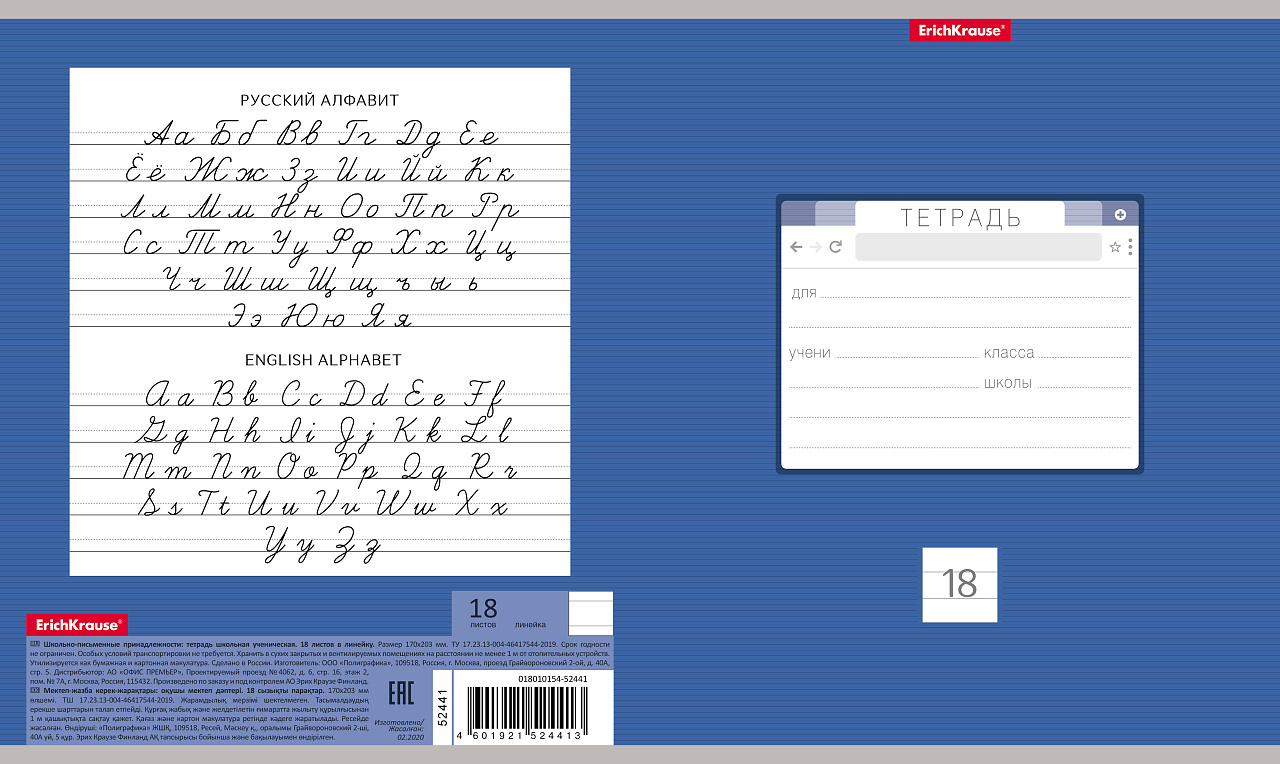 ErichKrause®
РУССКИЙ АЛФАВИТ
Аа Бб Вв Гг Дд Ее
Ёё Жж Зз Ии Йй Кк
Лл Мм Нн Оо Пп Рр
Сс Тт Уу Фф Хх Цц
Чч Шш Щщ ъ ы ь
Ээ Юю Яя
ENGLISH ALPHABET
Aa Bb Cc Dd Ee Ff
Gg Hh Ii Jj Kk Ll
Mm Nn Oo Pp Qq Rr
Ss Tt Uu Vv Ww Xx
Yy Zz
ТЕТРАДЬ
для
учени класса
школы
18
18
листов линейка
ErichKrause®
Школьно-письменные принадлежности: тетрадь школьная ученическая. 18 листов в линейку. Размер 170х203 мм. ТУ 17.23.13-004-46417544-2019. Срок годности
не ограничен. Особых условий транспортировки не требуется. Хранить в сухих закрытых и вентилируемых помещениях на расстоянии не менее 1 м от отопительных устройств.
Утилизируется как бумажная и картонная макулатура. Сделано в России. Изготовитель: ООО «Полиграфика», 109518, Россия, г. Москва, проезд Грайвороновский 2-ой, д. 40А,
стр. 5. Дистрибьютор: АО «ОФИС ПРЕМЬЕР», Проектируемый проезд №4062, д. 6, стр. 16, этаж 2,
пом. № 7А, г. Москва, Россия, 115432. Произведено по заказу и под контролем АО Эрих Краузе Финланд.
Мектеп-жазба керек-жарақтары: оқушы мектеп дәптері. 18 сызықты парақтар. 170х203 мм
өлшемі. ТШ 17.23.13-004-46417544-2019. Жарамдылық мерзімі шектелмеген. Тасымалдаудың
ерекше шарттарын талап етпейді. Құрғақ жабық және желдетілетін ғимаратта жылыту құрылғысынан
1 м қашықтықта сақтау қажет. Қағаз және картон макулатура ретінде кәдеге жаратылады. Ресейде
жасалған. Өндіруші: «Полиграфика» ЖШҚ, 109518, Ресей, Мәскеу қ., оралымы Грайвороновский 2-ші,
40А үй, 5 құр. Эрих Краузе Финланд АҚ тапсырысы бойынша және бақылауымен өндірілген.
EAC
Изготовлено/
Жасалған:
02.2020
52441
018010154-52441
4 601921 524413